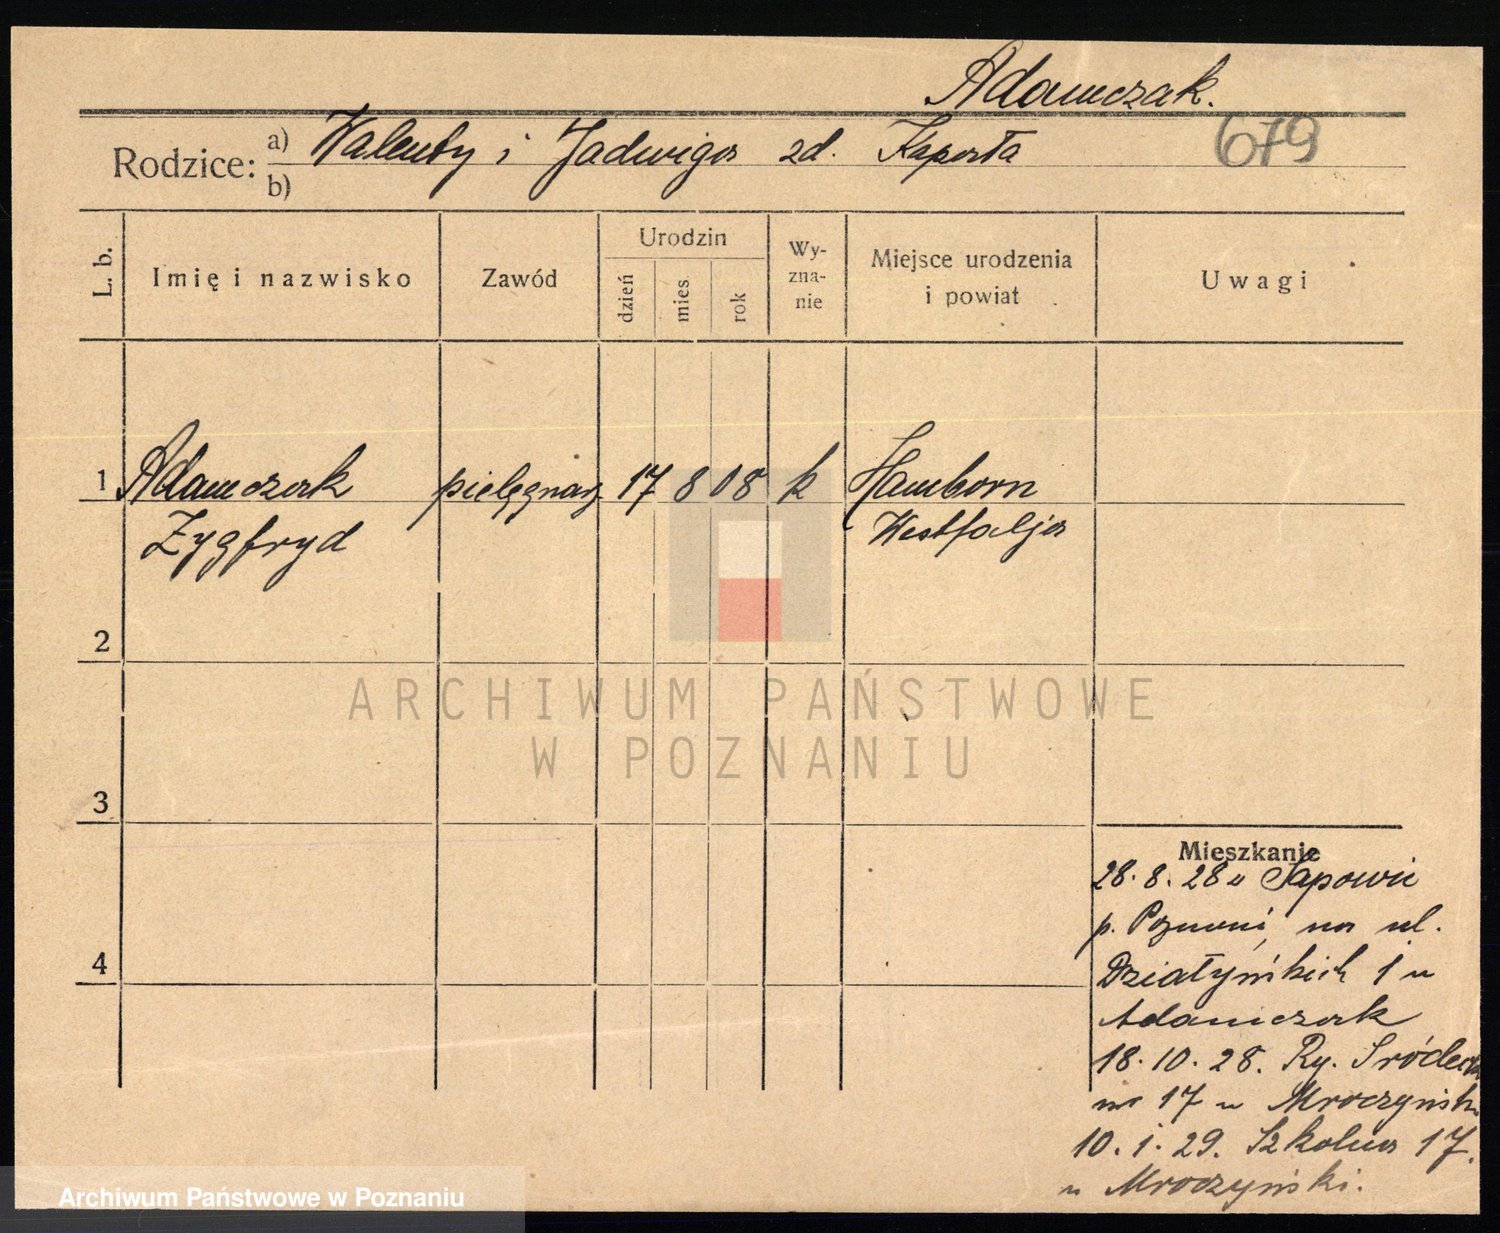 Adamczak.
679
Rodzice: a) Walenty i Jadwiga zd. Kaperła
b)
L. b.
Imię i nazwisko
Zawód
Urodzin
dzień
mies
rok
Wy-
zna-
nie
Miejsce urodzenia
i powiat
Uwagi
1 Adamczak pielęgniarz 17 8 08 k Hamborn
Zygfryd Westfalja
2
3
4
Mieszkanie
28. 8. 28 z
p. Poznań, na ul.
Działyńskich 1 u
Adamczak
18. 10. 28. Ry. Śródecki
nr 17 u Mroczyński
10. 1. 29. Szkolna 17.
u Mroczyński.
ARCHIWUM PAŃSTWOWE
W POZNANIU
Archiwum Państwowe w Poznaniu